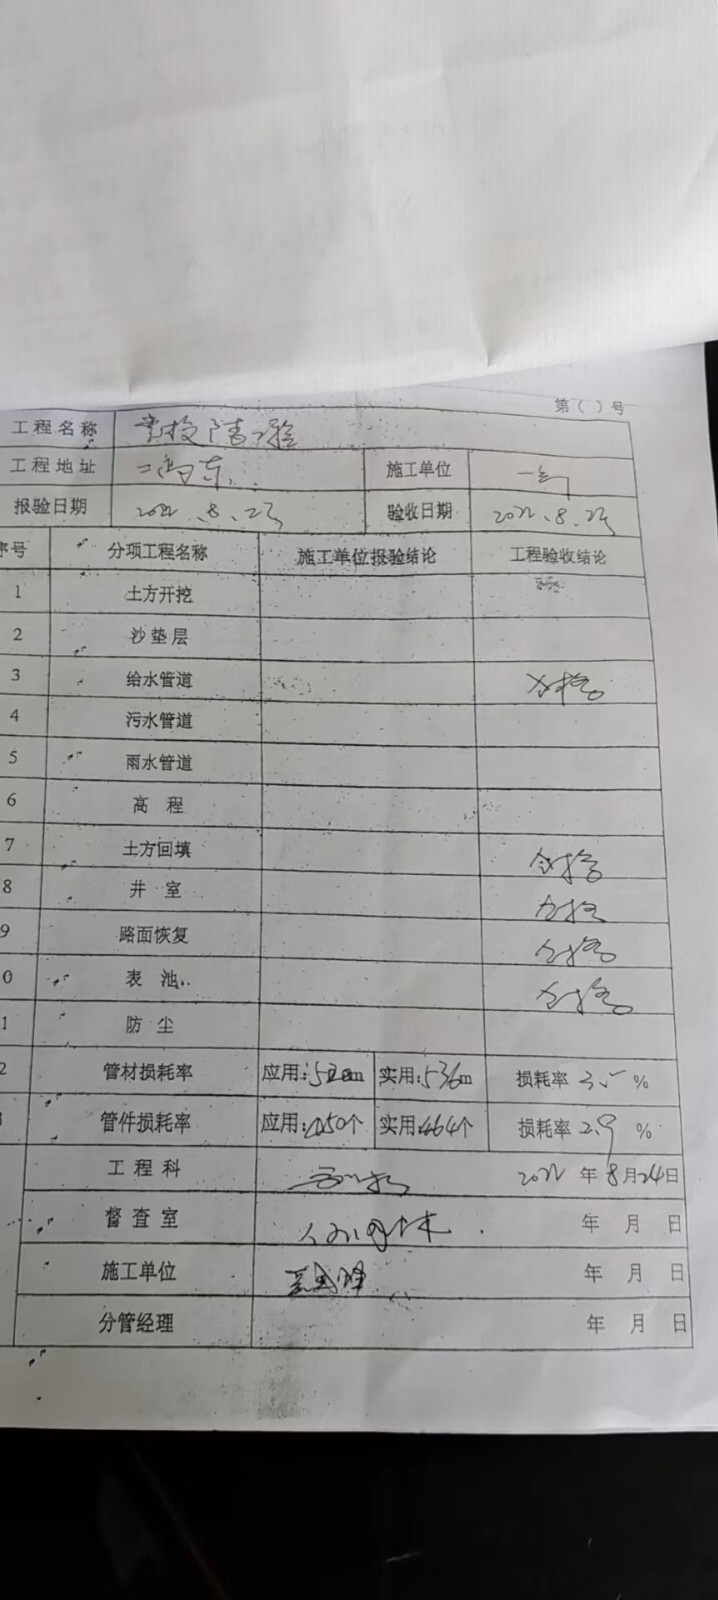 第（ ）号
工程名称
工程地址 二高东 施工单位
报验日期 2022.8.23 验收日期 2022.8.23
序号 分项工程名称 施工单位报验结论 工程验收结论
1 土方开挖
2 沙垫层
3 给水管道 合格
4 污水管道
5 雨水管道
6 高 程
7 土方回填 合格
8 井 室 合格
9 路面恢复 合格
0 表 池 合格
1 防 尘
2 管材损耗率 应用: 实用:536m 损耗率 3.5 %
管件损耗率 应用: 450个 实用:464个 损耗率 2.9 %
工程科 2022 年 8 月 24 日
督查室 年 月 日
施工单位 年 月 日
分管经理 年 月 日